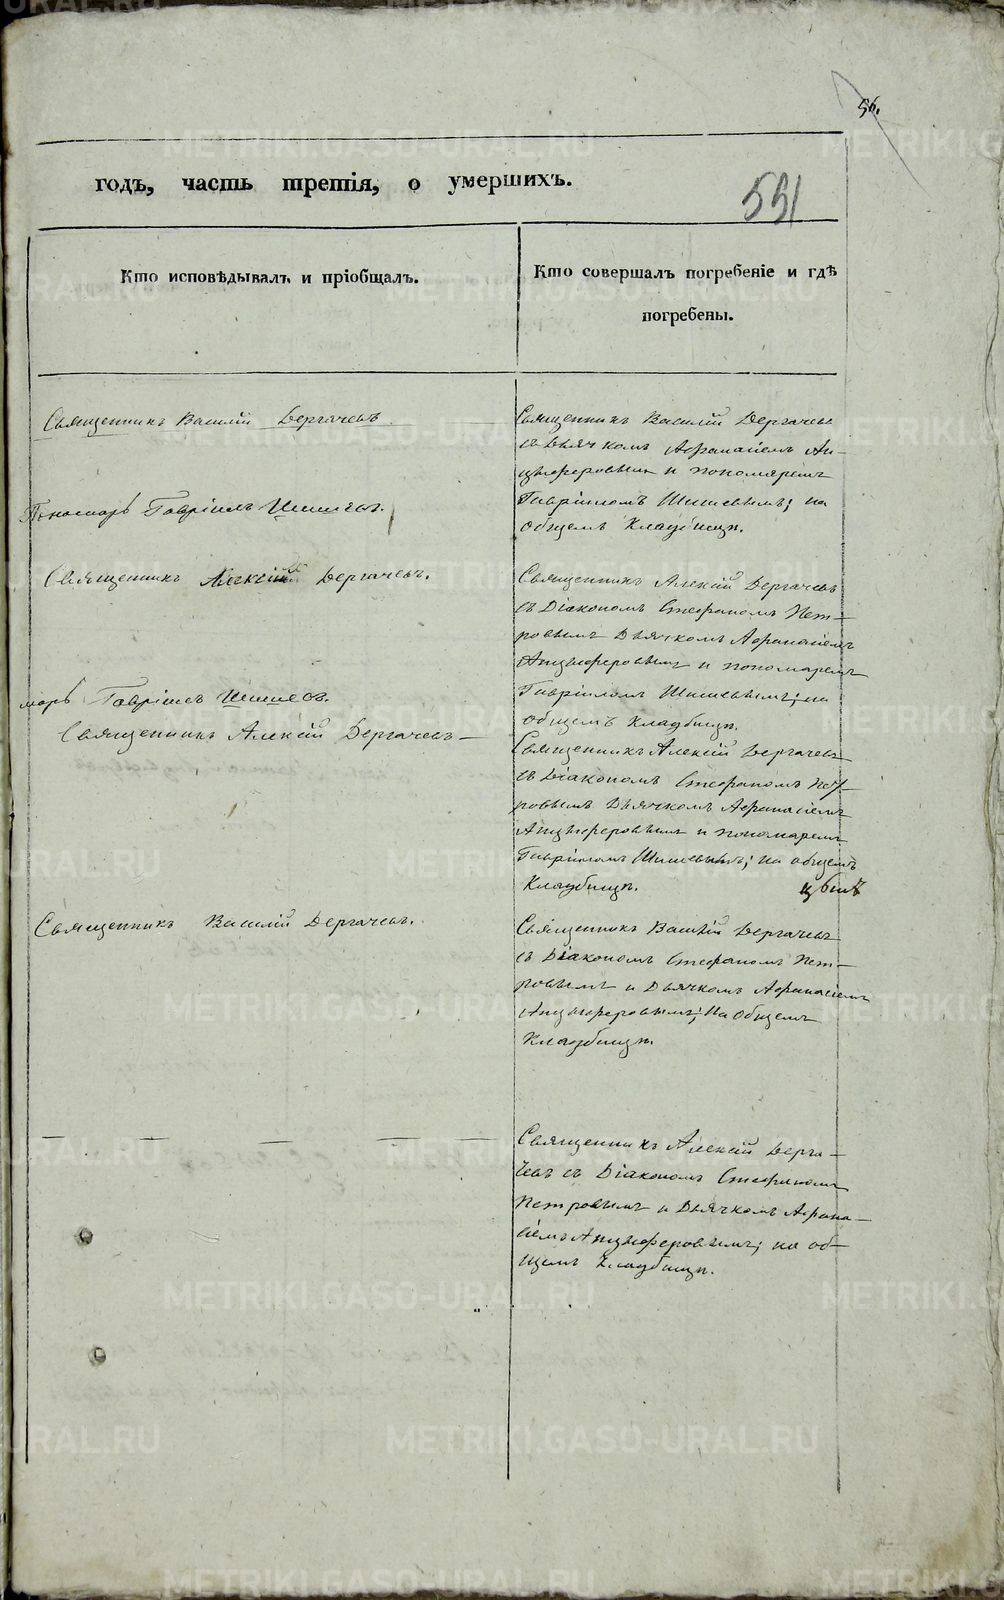 56.
годъ, часть третія, о умершихъ.
551
Кто исповѣдывалъ и пріобщалъ.
Кто совершалъ погребеніе и гдѣ
погребены.
Священникъ Василій Дергачевъ
Священникъ Василій Дергачевъ
съ Дьячкомъ Афанасіемъ Ан-
цыферовымъ и пономаремъ
Гавріиломъ Шишевымъ; на
общемъ Кладбищѣ.
Пономарь Гавріилъ Шишевъ.
Священникъ Алексій Дергачевъ.
Священникъ Алексій Дергачевъ
съ Діакономъ Стефаномъ Пет-
ровымъ Дьячкомъ Афанасіемъ
Анцыферовымъ и пономаремъ
Гавріиломъ Шишевымъ; на
общемъ Кладбищѣ.
марь Гавріилъ Шишевъ.
Священникъ Алексій Дергачевъ-
Священникъ Алексій Дергачевъ
съ Діакономъ Стефаномъ Пет-
ровымъ Дьячкомъ Афанасіемъ
Анцыферовымъ и пономаремъ
Гавріиломъ Шишевымъ; на общемъ
Кладбищѣ.
Священникъ Василій Дергачевъ.
Священникъ Василій Дергачевъ
съ Діакономъ Стефаномъ Пет-
ровымъ и Дьячкомъ Афанасіемъ
Анцыферовымъ; на общемъ
Кладбищѣ.
Священникъ Алексій Дерга-
чевъ съ Діакономъ Стефаномъ
Петровымъ и Дьячкомъ Афана-
сіемъ Анцыферовымъ; на об-
щемъ Кладбищѣ.
METRIKI.GASO-URAL.RU